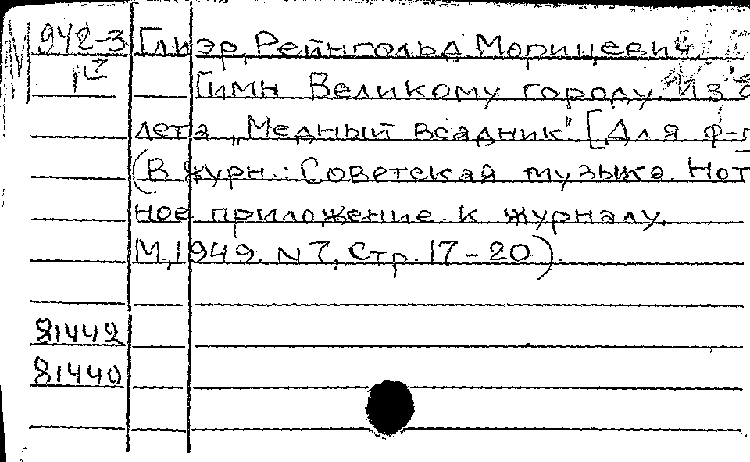 М 942-3 Глиэр, Рейнгольд Морицевич
Гимн Великому городу. Из б
лета „Медный всадник". [Для ф-п
(В журн.: Советская музыка. Нот
ное приложение к журналу.
М, 1949. N 7, Стр. 17-20).
81442
81440